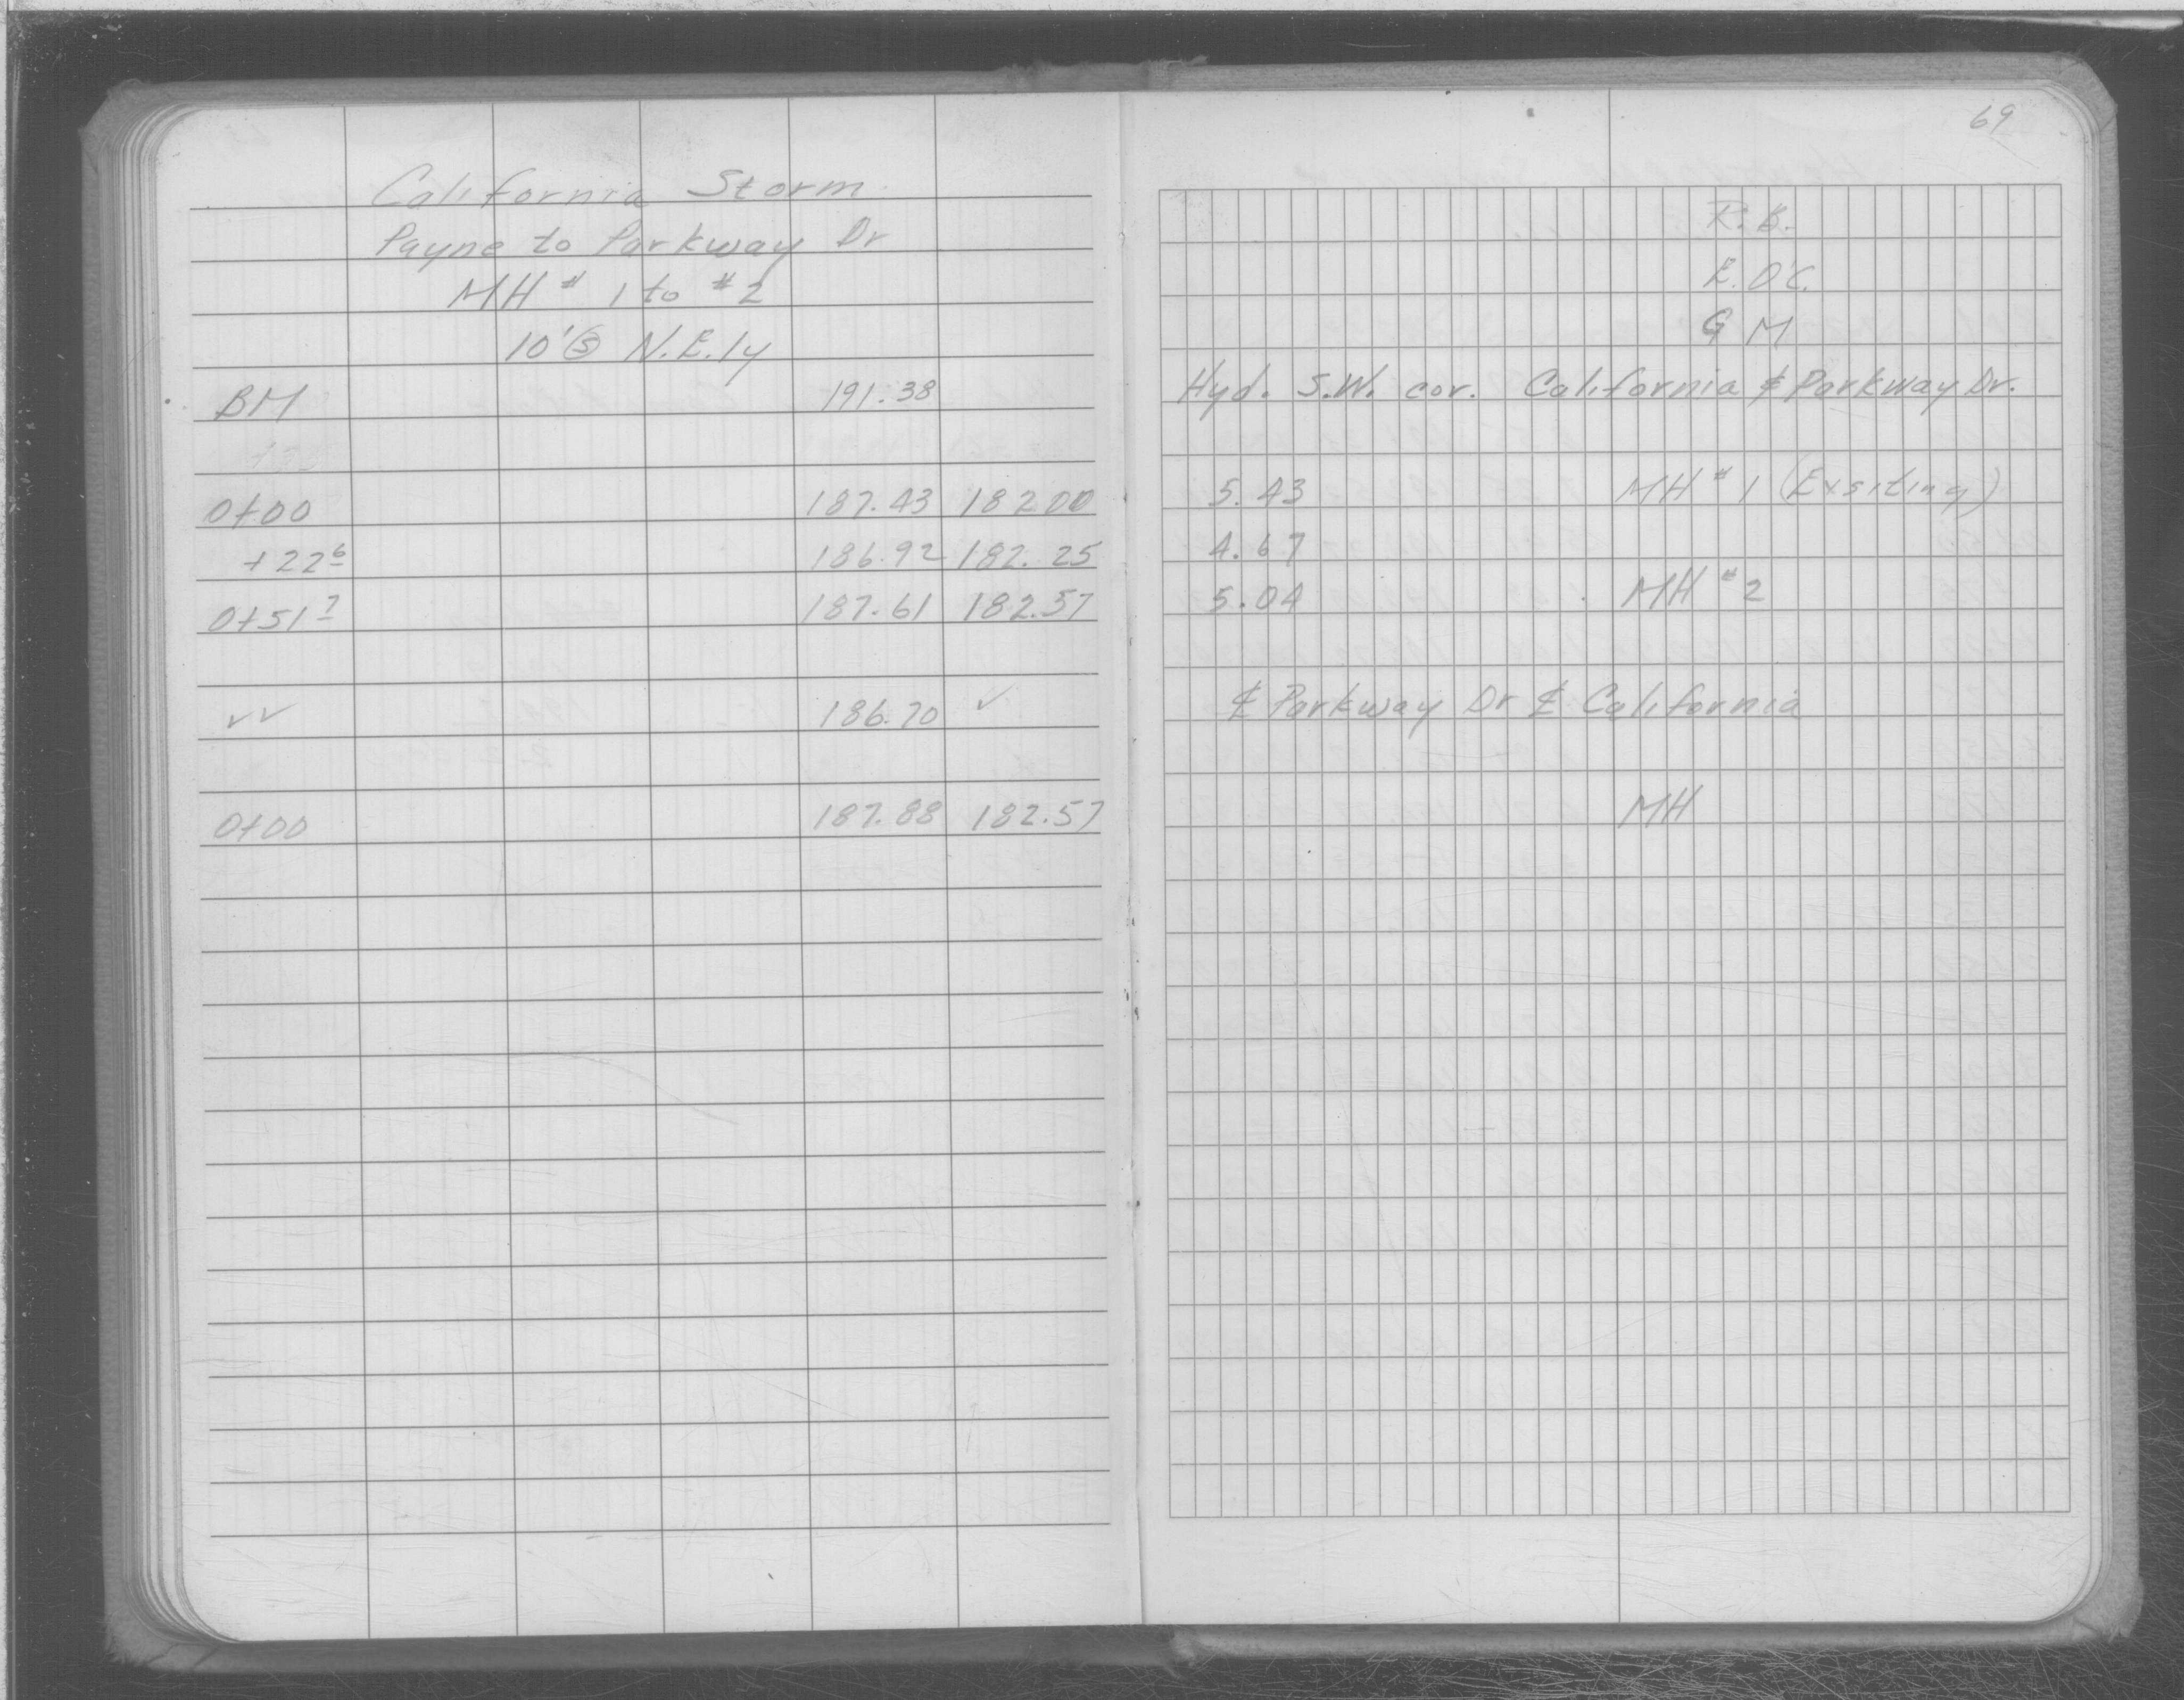 California Storm
Payne to Parkway Dr
MH # 1 to # 2
10' S N.E.ly
BM 191.38
0+00 187.43 182.00
+22 6 186.92 182.25
0+51 7 187.61 182.57
✓✓ 186.70 ✓
0+00 187.88 182.57
69
R.B.
E.O'C.
G M
Hyd. S.W. cor. California & Parkway Dr.
5.43 MH # 1 (Exsiting)
4.67
5.04 MH # 2
℄ Parkway Dr ℄ California
MH